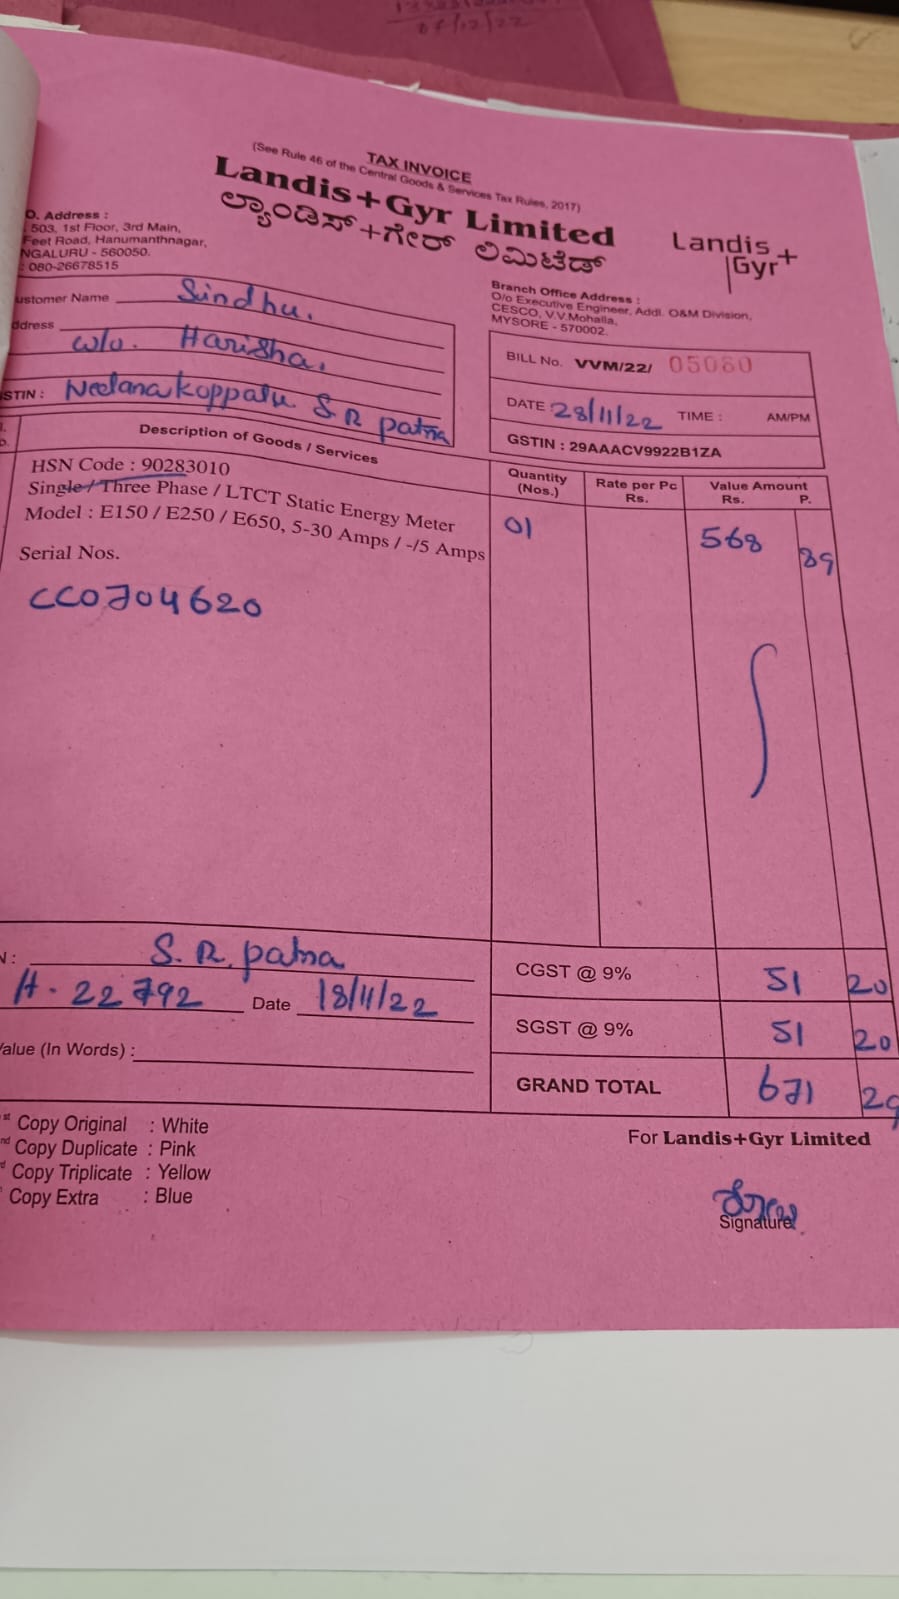 07/02/22
TAX INVOICE
(See Rule 46 of the Central Goods & Services Tax Rules, 2017)
Landis+Gyr Limited
ಲ್ಯಾಂಡಿಸ್+ಗೇರ್ ಲಿಮಿಟೆಡ್
Landis+
Gyr
O. Address :
503, 1st Floor, 3rd Main,
Feet Road, Hanumanthnagar,
NGALURU - 560050.
: 080-26678515
Branch Office Address :
O/o Executive Engineer, Addl. O&M Division,
CESCO, V.V.Mohalla,
MYSORE - 570002.
ustomer Name Sindhu.
ddress w/o. Harisha.
STIN : Neelanakoppalu S R patna
BILL No. VVM/22/ 05060
DATE 28/11/22 TIME : AM/PM
GSTIN : 29AAACV9922B1ZA
Description of Goods / Services
Quantity (Nos.) Rate per Pc Rs. Value Amount Rs. P.
HSN Code : 90283010
Single / Three Phase / LTCT Static Energy Meter
Model : E150 / E250 / E650, 5-30 Amps / -/5 Amps
01 568 89
Serial Nos.
CC0704620
N : S. R. patna
H. 22792 Date 18/11/22
Value (In Words) :
CGST @ 9% 51 20
SGST @ 9% 51 20
GRAND TOTAL 671 29
st Copy Original : White
nd Copy Duplicate : Pink
d Copy Triplicate : Yellow
Copy Extra : Blue
For Landis+Gyr Limited
Signature